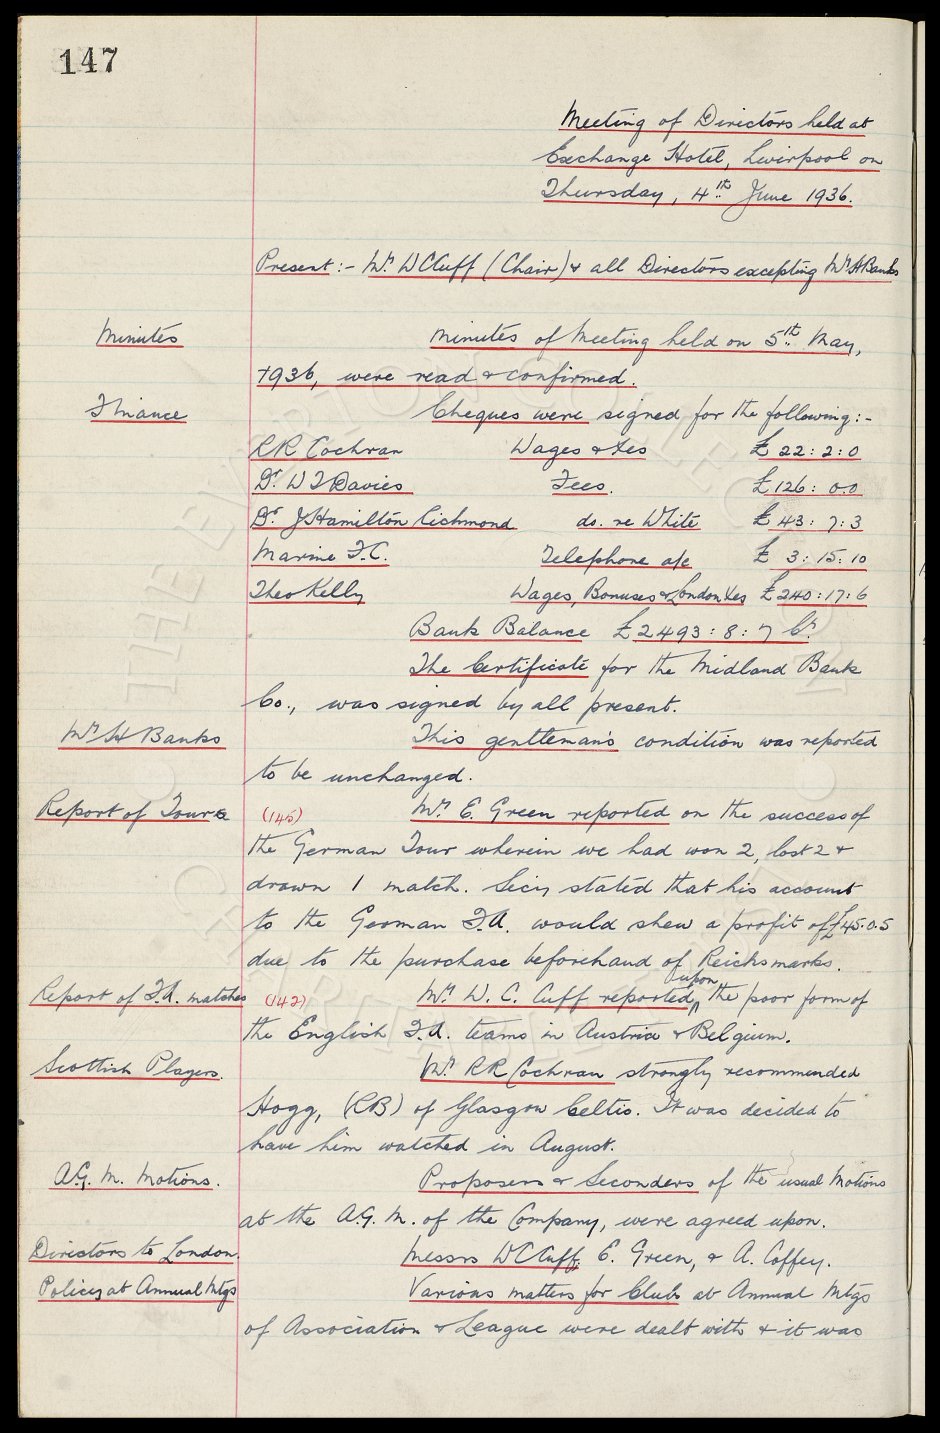 147
Meeting of Directors held at
Exchange Hotel, Liverpool on
Thursday, 4th June 1936.
Present:- Mr. W C Cuff (Chair) & all Directors excepting Mr H Banks
Minutes Minutes of Meeting held on 5th May,
1936, were read & confirmed.
Finance Cheques were signed for the following:-
R R Cochran Wages & Xes £22:2:0
Dr. W T Davies Fees. £126:0.0
Dr J Hamilton Richmond do. re White £43:7:3
Marine F.C. Telephone a/c £3:15:10
Theo Kelly Wages, Bonuses & London Xes £240:17:6
Bank Balance £2493:8:7 Cr.
The Certificate for the Midland Bank
Co., was signed by all present.
Mr H Banks This gentleman's condition was reported
to be unchanged.
Report of Tour (145) Mr. E. Green reported on the success of
the German Tour wherein we had won 2, lost 2 &
drawn 1 match. Secy stated that his account
to the German F.A. would shew a profit of £45.0.5
due to the purchase beforehand of Reichsmarks.
Report of F.A. matches (142) Mr. W. C. Cuff reported upon the poor form of
the English F.A. teams in Austria & Belgium.
Scottish Players. Mr. R R Cochran strongly recommended
Hogg, (RB) of Glasgow Celtic. It was decided to
have him watched in August.
A.G.M. Motions. Proposers & Seconders of the usual Motions
at the A.G.M. of the Company, were agreed upon.
Directors to London. Messrs W C Cuff, E. Green, & A. Coffey.
Policy at Annual Mtgs Various matters for Club at Annual Mtgs
of Association & League were dealt with & it was
THE EVERTON COLLECTION
CHARITABLE TRUST